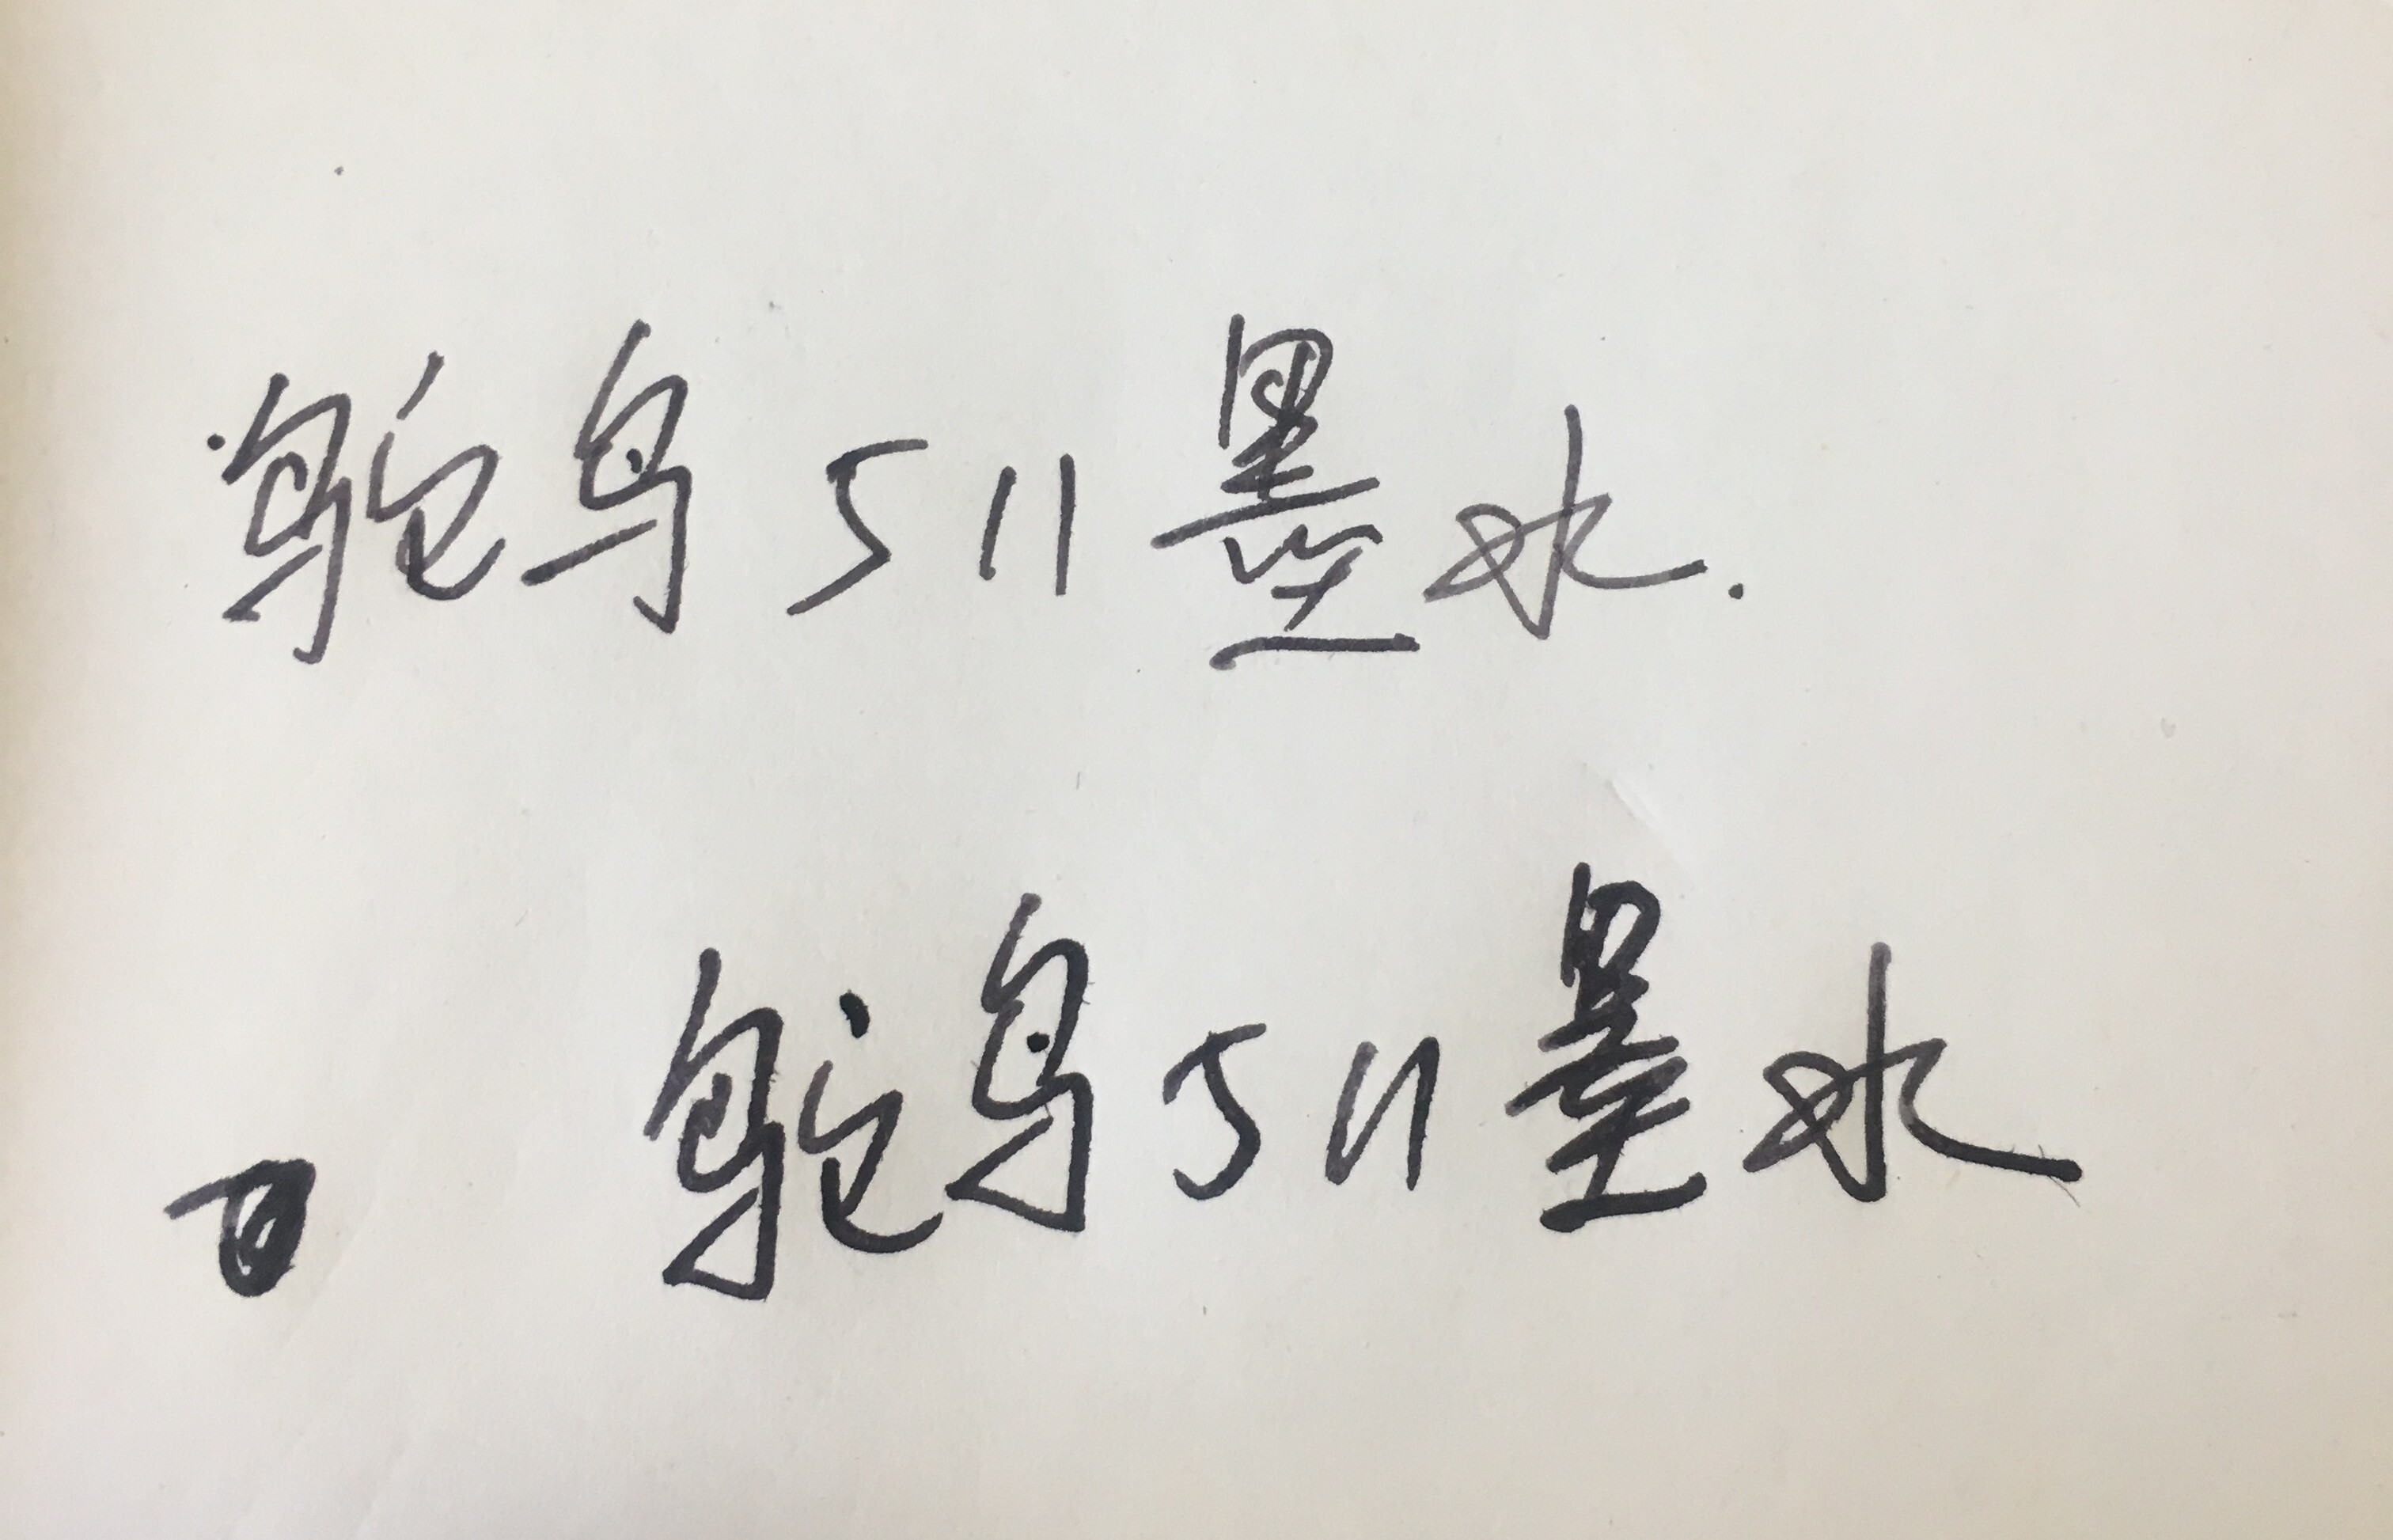 鸵鸟511墨水.
鸵鸟511墨水